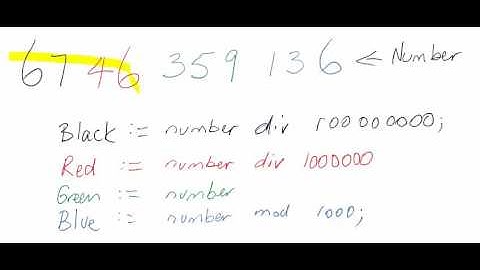 6746 359 136 ← Number
Black := number div 100000000;
Red := number div 1000000
Green := number
Blue := number mod 1000;